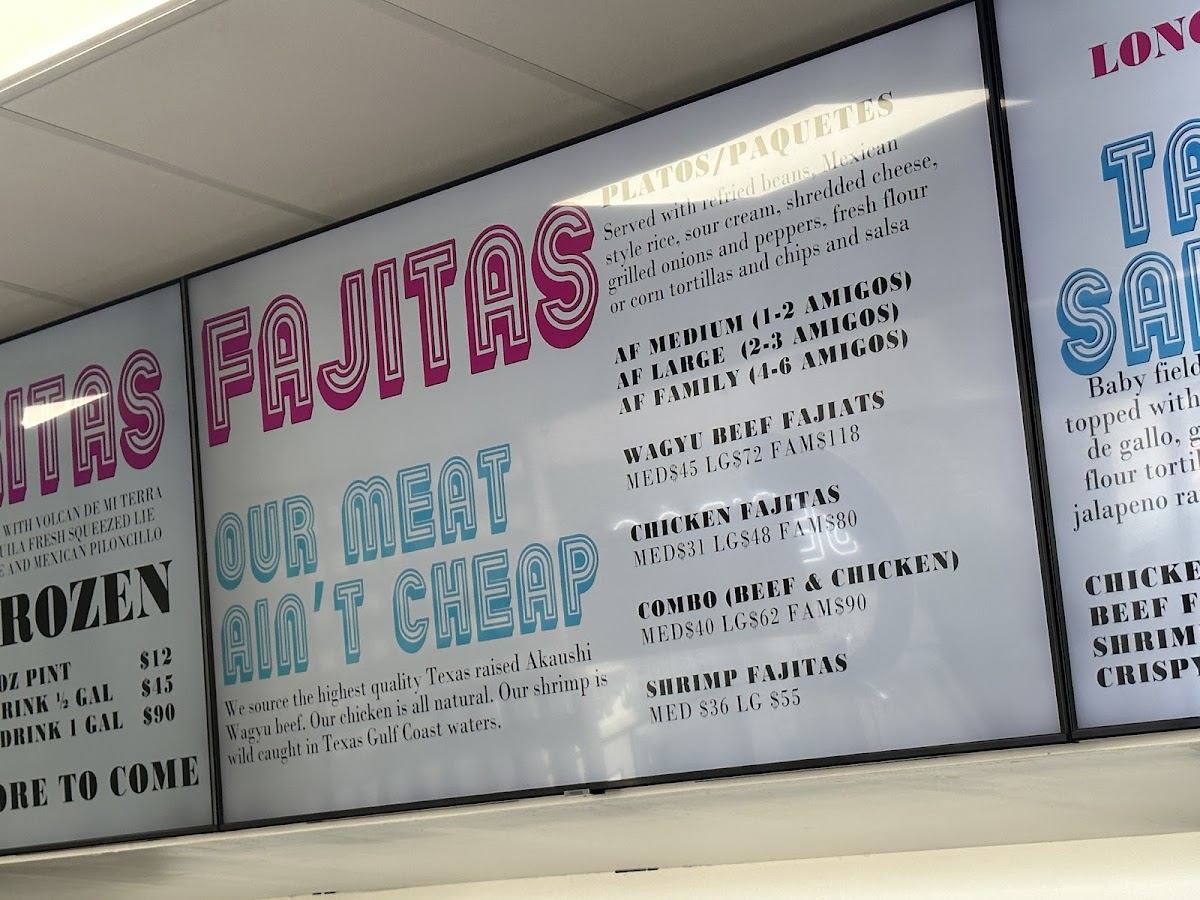 ITAS
WITH VOLCAN DE MI TERRA
FRESH SQUEEZED LIE
AND MEXICAN PILONCILLO
ROZEN
OZ PINT $12
½ GAL $45
DRINK 1 GAL $90
TO COME
FAJITAS
OUR MEAT
AIN'T CHEAP
We source the highest quality Texas raised Akaushi
Wagyu beef. Our chicken is all natural. Our shrimp is
wild caught in Texas Gulf Coast waters.
PLATOS/PAQUETES
Served with refried beans, Mexican
style rice, sour cream, shredded cheese,
grilled onions and peppers, fresh flour
or corn tortillas and chips and salsa
AF MEDIUM (1-2 AMIGOS)
AF LARGE (2-3 AMIGOS)
AF FAMILY (4-6 AMIGOS)
WAGYU BEEF FAJIATS
MED$45 LG$72 FAM$118
CHICKEN FAJITAS
MED$31 LG$48 FAM$80
COMBO (BEEF & CHICKEN)
MED$40 LG$62 FAM$90
SHRIMP FAJITAS
MED $36 LG $55
LONG
TA
SA
Baby field
topped with
de gallo, g
flour tortil
jalapeno ra
CHICKE
BEEF F
SHRIM
CRISPY